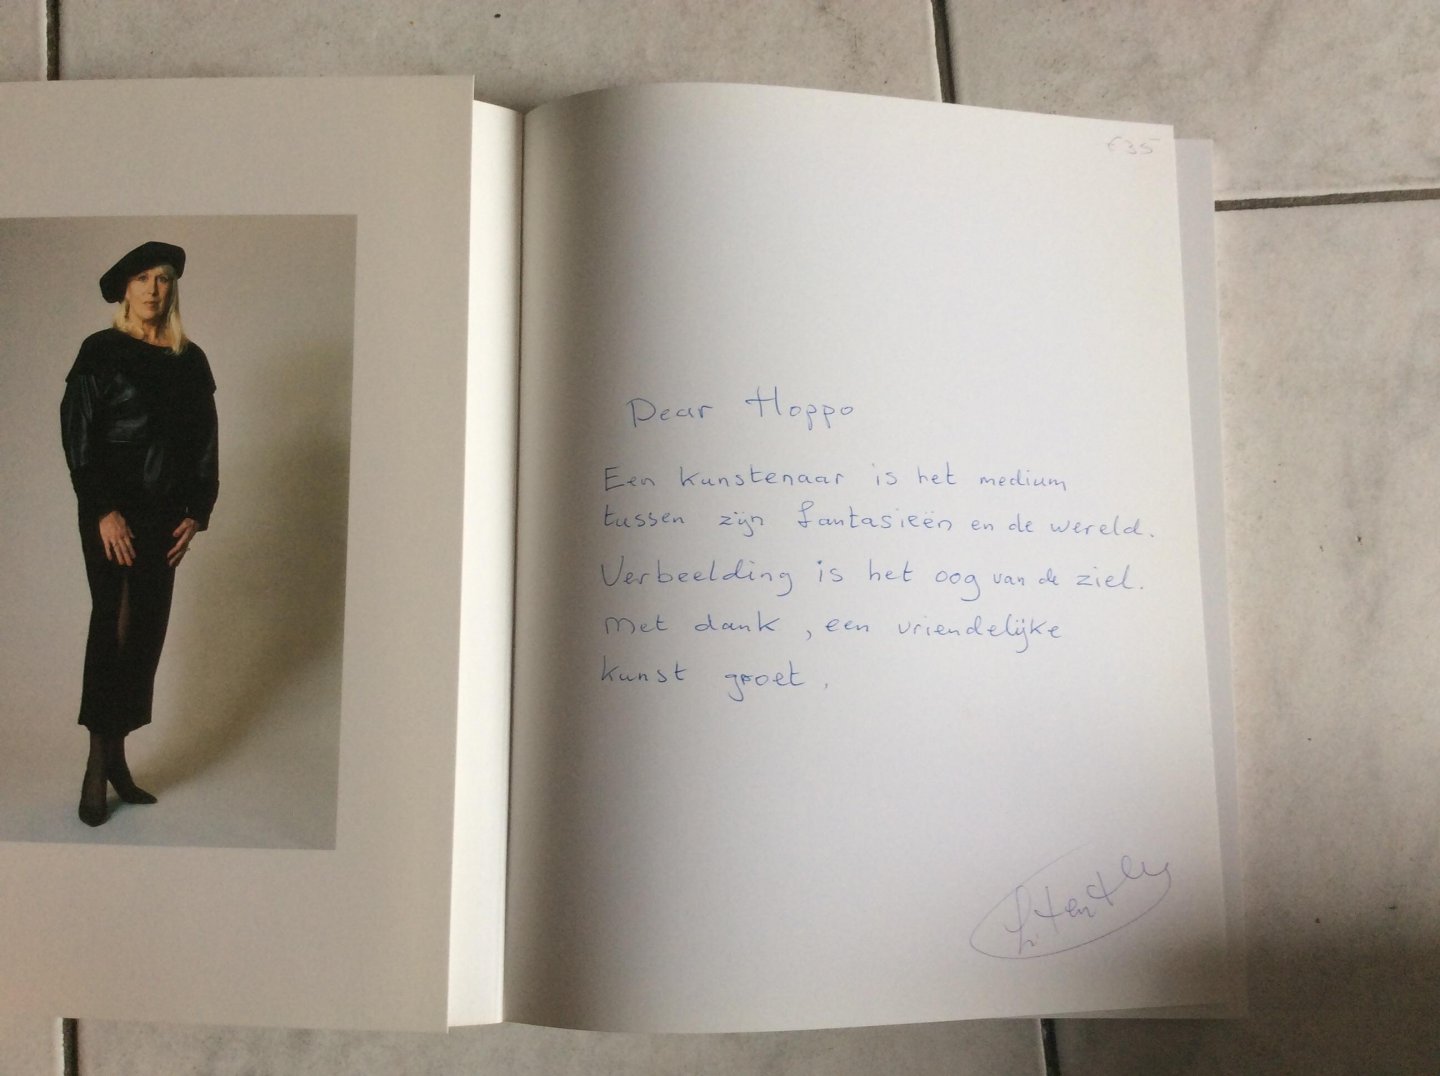 €35
Dear Hoppo
Een kunstenaar is het medium
tussen zijn fantasieën en de wereld.
Verbeelding is het oog van de ziel.
Met dank, een vriendelijke
kunst groet,